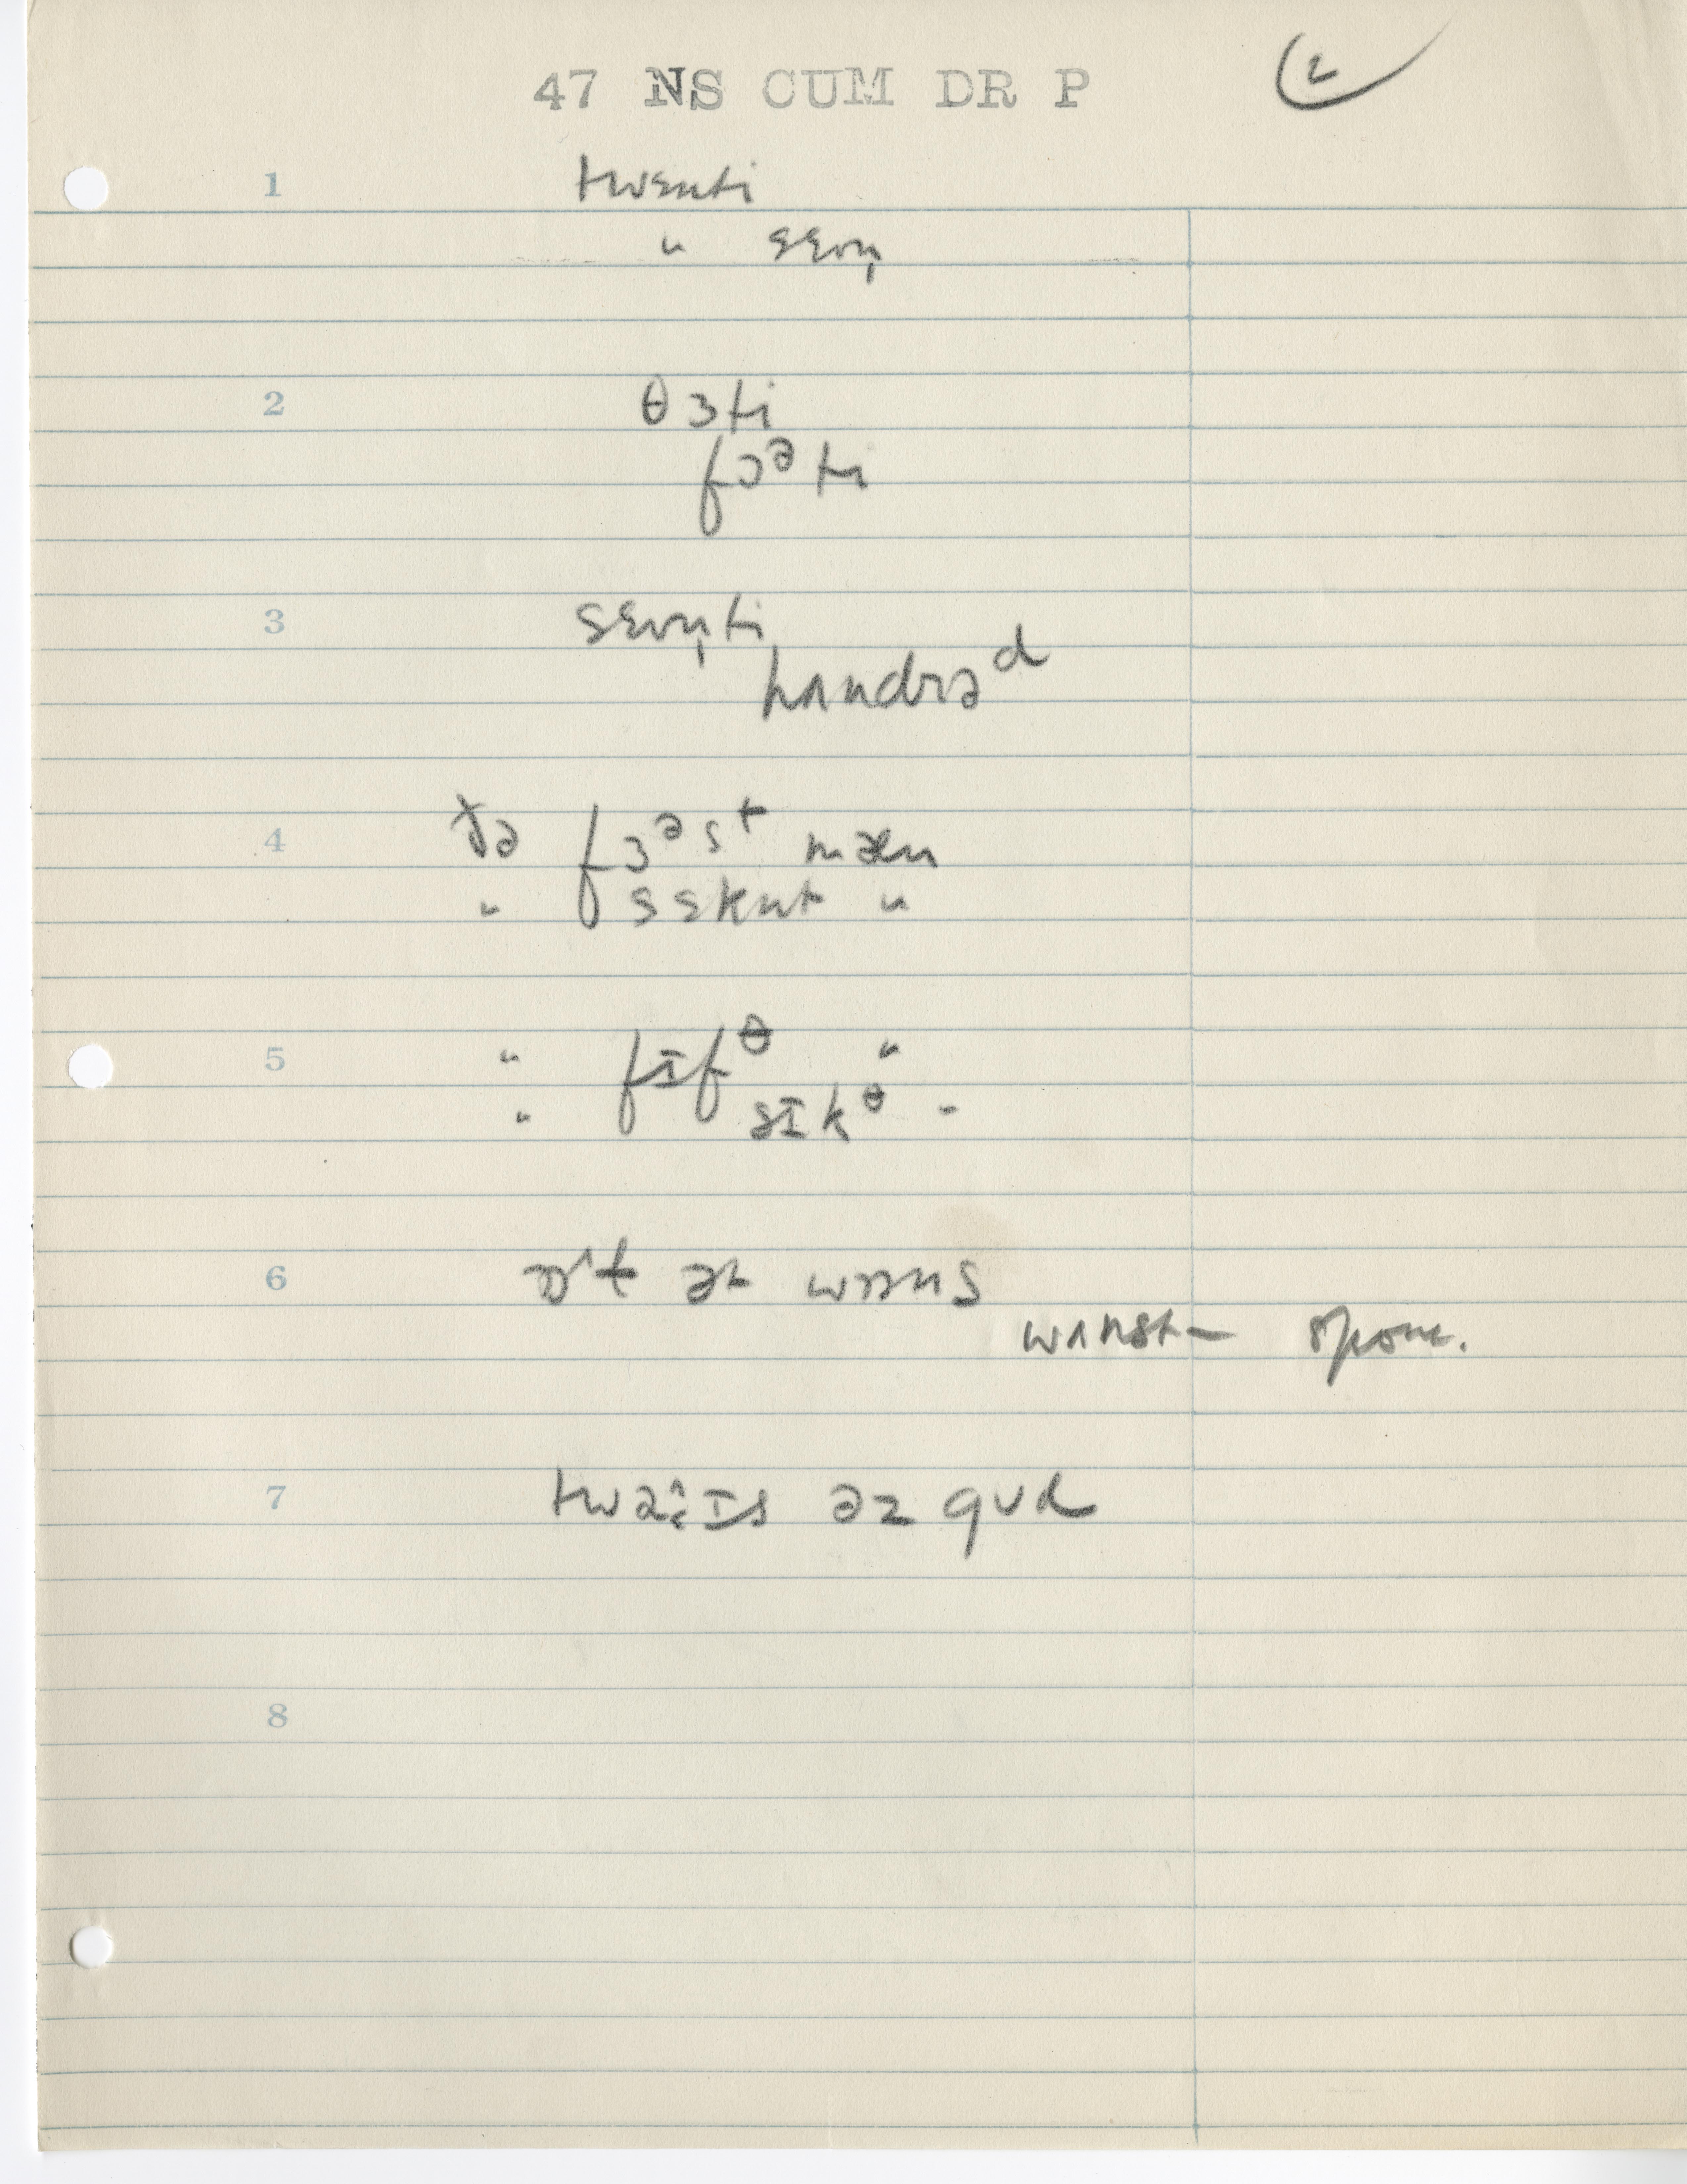 47 NS CUM DR P 2
1 twɛnti
" sɛvn̩
2 θɜti
fɔᵊti
3 sɛvn̩ti
hʌndrəᵈ
4 ðə fɜᵊsᵗ mæn
" sɛknt "
5 " fɪfᶿ "
" sɪkᶿ "
6 ət wʌns
wʌnst – spon.
7 əz gud
8